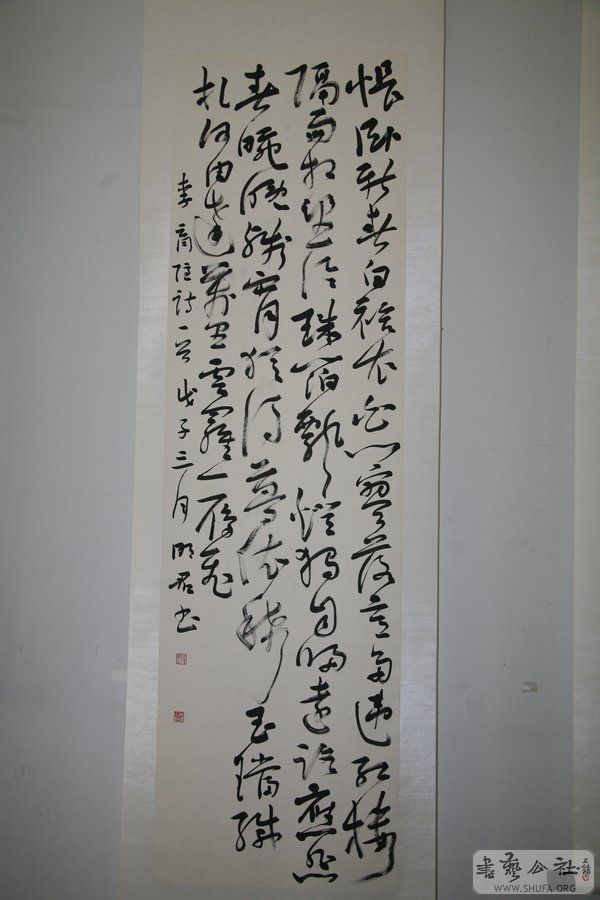 悵臥新春白袷衣白門寥落意多違紅樓
隔雨相望冷珠箔飄燈獨自歸遠路應悲
春晼晚殘宵猶得夢依稀玉璫緘
札何由達萬里雲羅一雁飛
李商隱詩一首戊子三月明君书
書藝公社
WWW.SHUFA.ORG